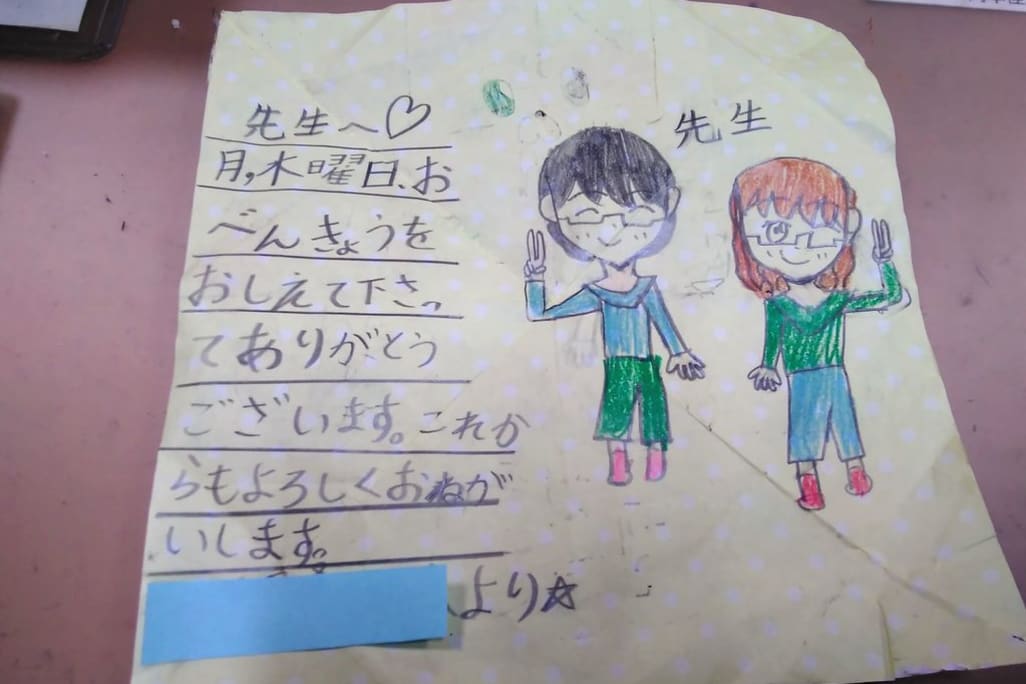 先生へ♡
月,木曜日、お
べんきょうを
おしえて下さっ
てありがとう
ございます。これか
らもよろしくおねが
いします。
より☆
先生